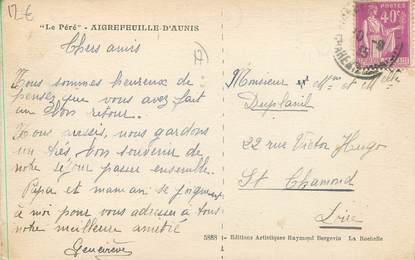 12€
"Le Péré" - AIGREFEUILLE-D'AUNIS
Chers amis
Nous sommes heureux de
pensez que vous avez fait
un bon retour.
Nous aussi, nous gardons
un très bon souvenir de
notre séjour passer ensemble.
Papa et maman se joignent
à moi pour vous adresser à tous
notre meilleure amitié
Geneviève
POSTES
40c
Monsieur et Mme et Melle
Duplanil
22 rue Victor Hugo
St Chamond
Loire
5888 - Editions Artistiques Raymond Bergevin La Rochelle